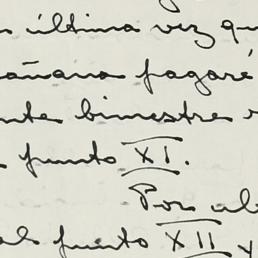 última vez qu
añana pagaré
nte bimestre
punto XI.
Por
al punto XII y